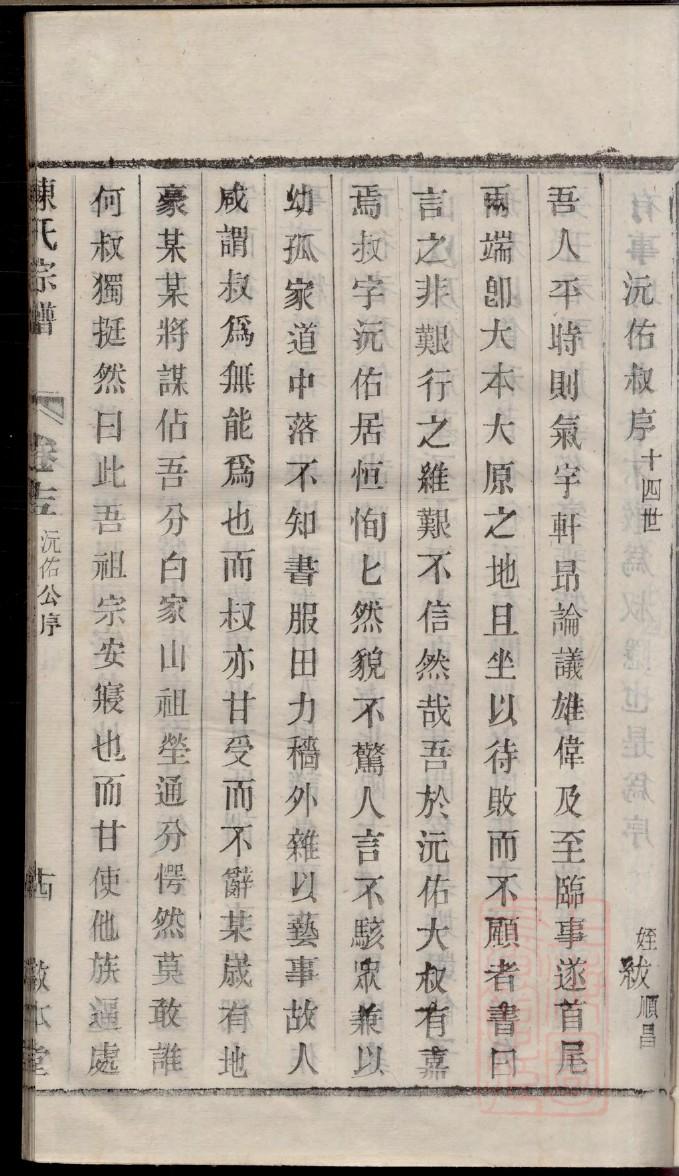 沅佑叔序 十四世 姪紱順昌
吾人平時則氣宇軒昂論議雄偉及至臨事遂首尾
兩端卽大本大原之地且坐以待敗而不顧者書曰
言之非艱行之維艱不信然哉吾於沅佑大叔有嘉
焉叔字沅佑居恒恂匕然貌不驚人言不駭眾兼以
幼孤家道中落不知書服田力穡外雜以藝事故人
咸謂叔爲無能爲也而叔亦甘受而不辭某歲有地
豪某某將謀佔吾分白家山祖塋通分愕然莫敢誰
何叔獨挺然曰此吾祖宗安寢也而甘使他族逼處
陳氏宗譜 卷 沅佑公序 敦本堂